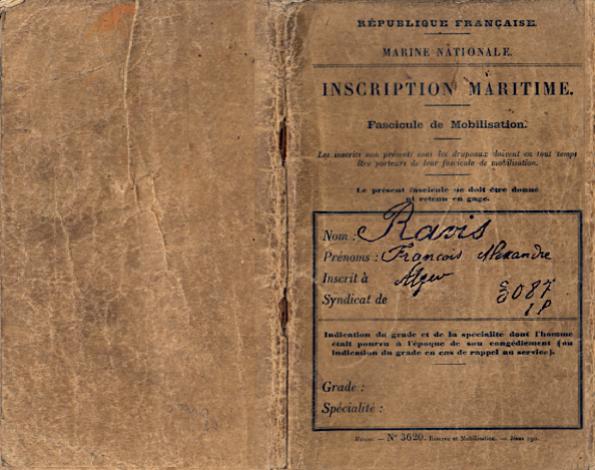 RÉPUBLIQUE FRANÇAISE.
MARINE NATIONALE.
INSCRIPTION MARITIME.
Fascicule de Mobilisation.
Les inscrits non présents sous les drapeaux doivent en tout temps
être porteurs de leur fascicule de mobilisation.
Le présent fascicule ne doit être donné
ni retenu en gage.
Nom : Ravis
Prénoms : François Alexandre
Inscrit à Alger
Syndicat de 8087
Indication du grade et de la spécialité dont l'homme
était pourvu à l'époque de son congédiement (ou
indication du grade en cas de rappel au service).
Grade :
Spécialité :
N° 3620. Réserve et Mobilisation.